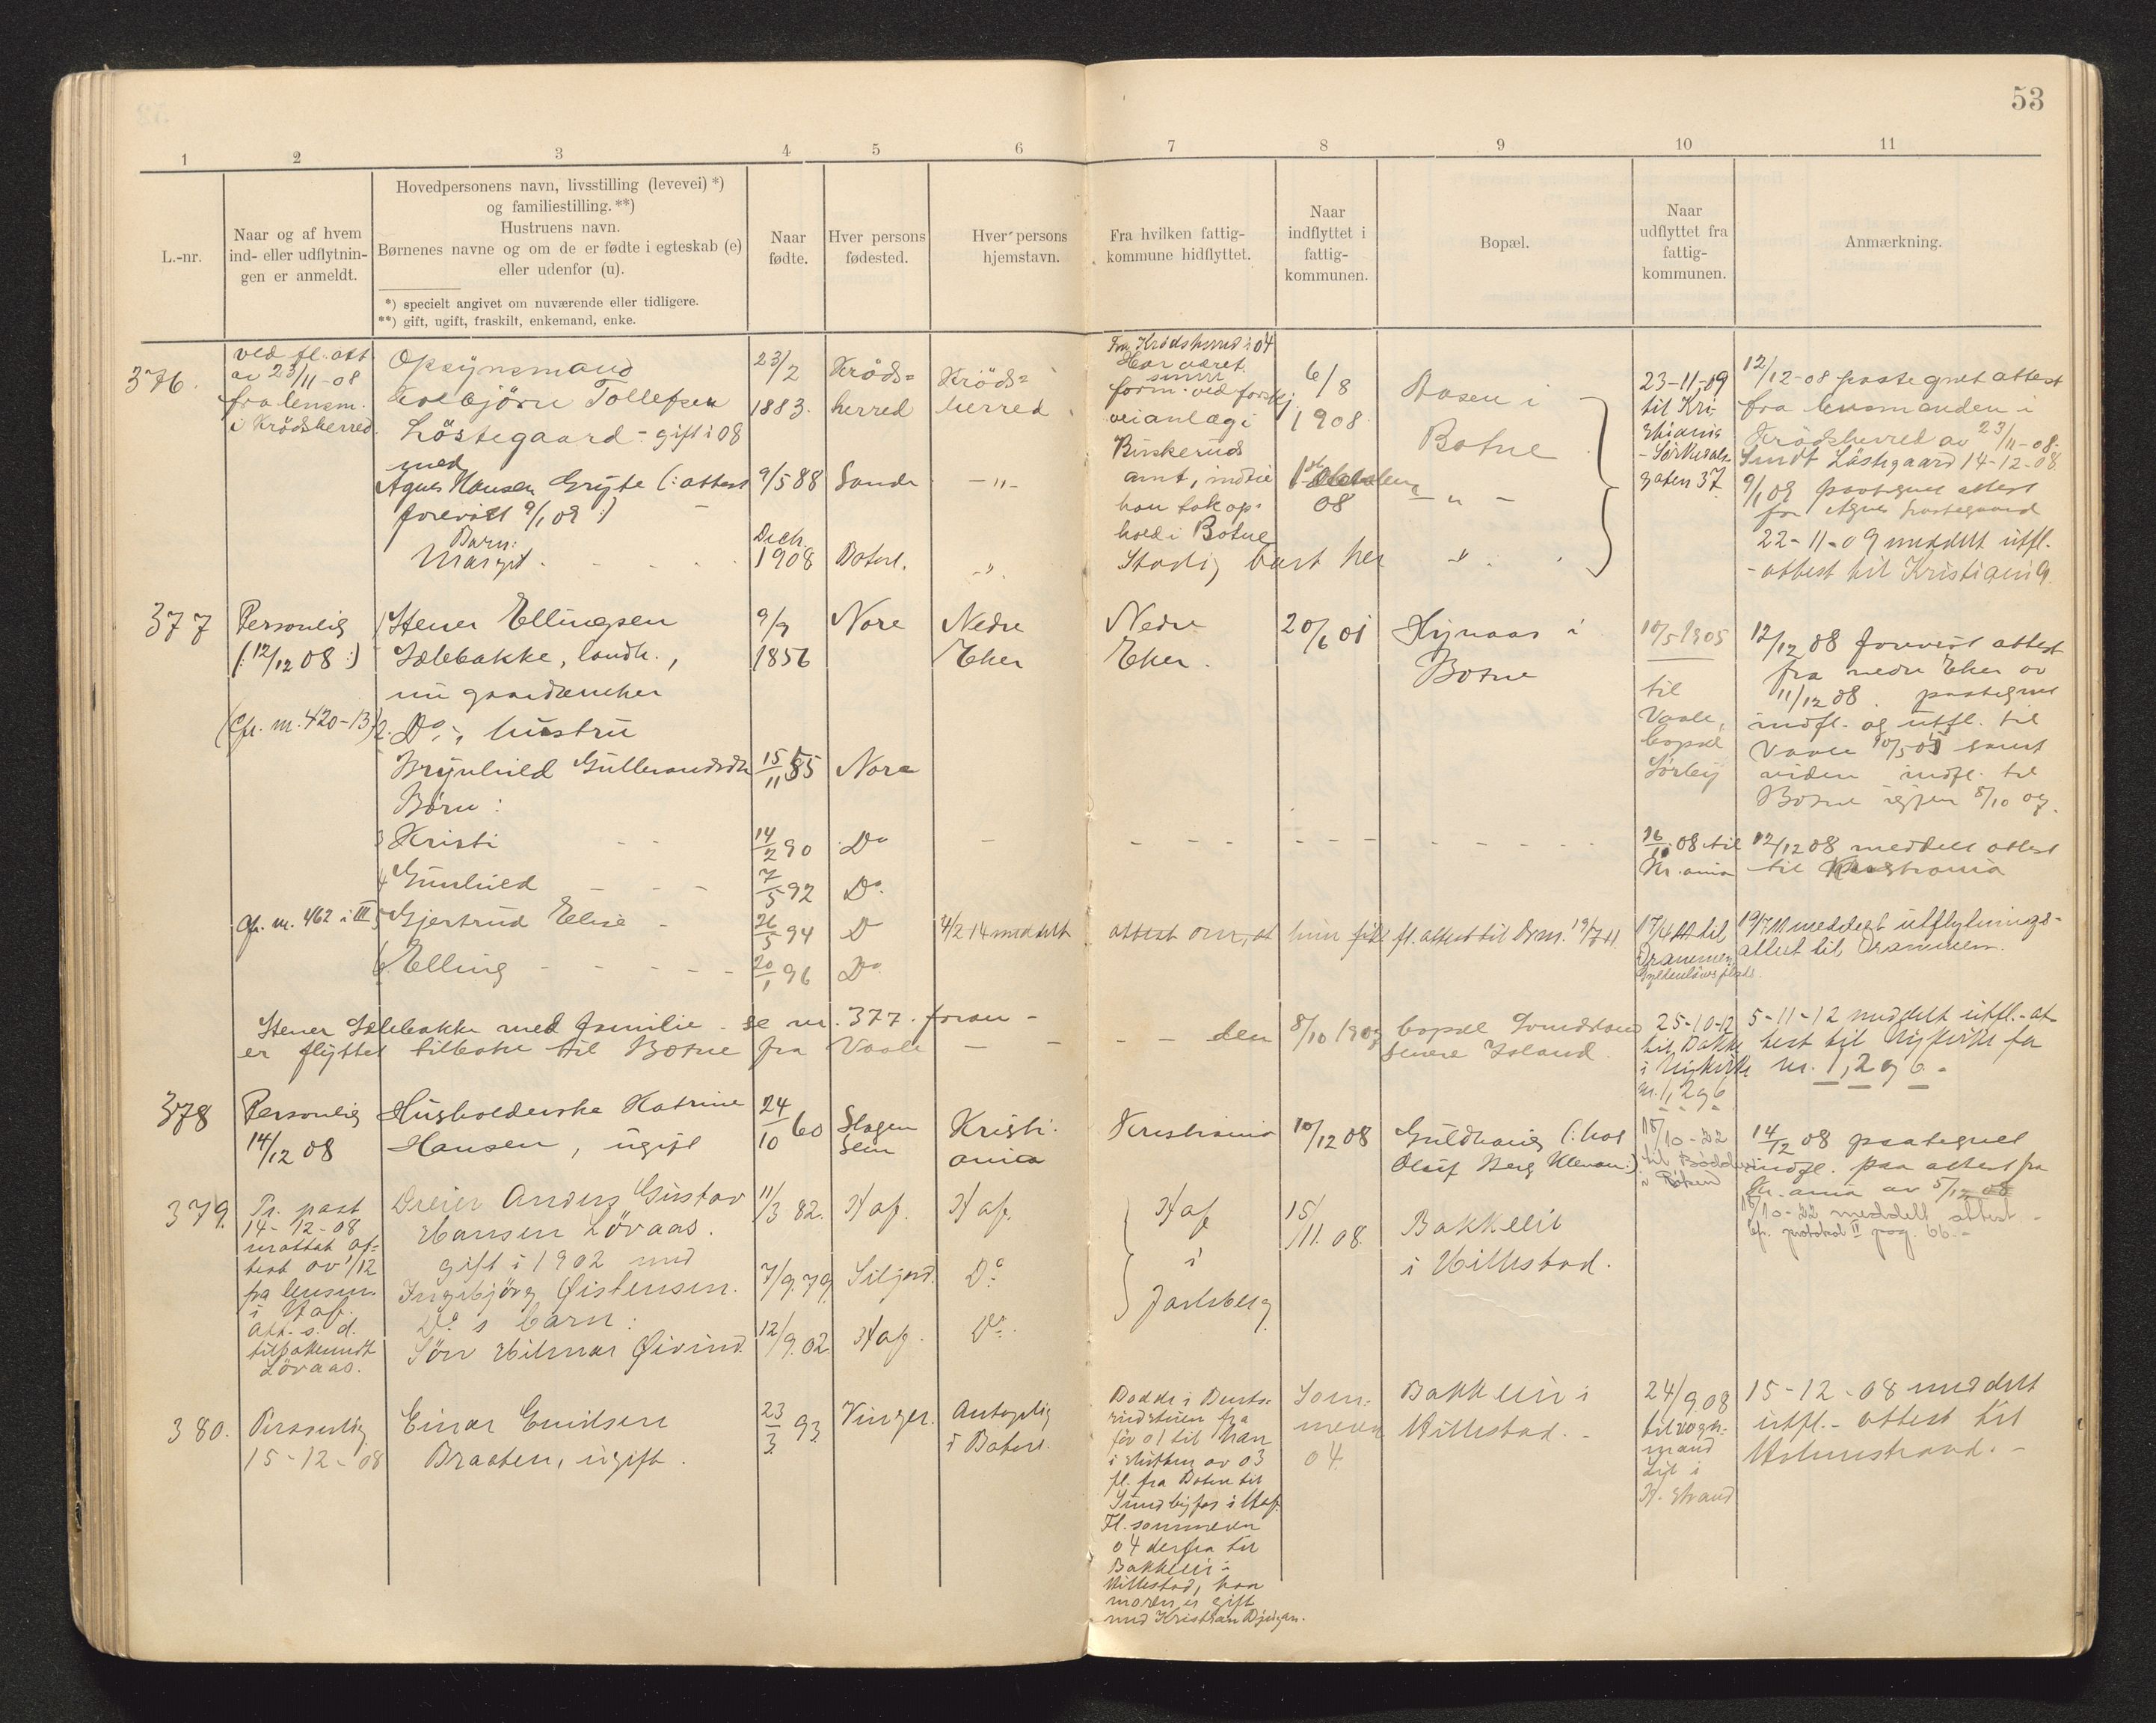 53
1 2 3 4 5 6 7 8 9 10 11
L.-nr.
Naar og af hvem
ind- eller udflytnin-
gen er anmeldt.
Hovedpersonens navn, livsstilling (levevei) *)
og familiestilling. **)
Hustruens navn.
Børnenes navne og om de er fødte i egteskab (e)
eller udenfor (u).
*) specielt angivet om nuværende eller tidligere.
**) gift, ugift, fraskilt, enkemand, enke.
Naar
fødte.
Hver persons
fødested.
Hver persons
hjemstavn.
Fra hvilken fattig-
kommune hidflyttet.
Naar
indflyttet i
fattig-
kommunen.
Bopæl.
Naar
udflyttet fra
fattig-
kommunen.
Anmærkning.
376.
ved fl. att.
av 23/11-08
fra lensm.
i Krödsherred.
Opsynsmand
Kolbjörn Tollefsen
Löstegaard - gift i 08
med
Agnes Hansen Gryte (: attest
forevist 9/1 09 :)
Barn:
Margit
23/2
1883.
9/5 88
Dech.
1908
Kröds=
herred
Sande
Botne.
Kröds=
herred.
-"-
-"-
Fra Krödsherred i 04
Har været
senere
form. ved forskj.
veianlæg i
Buskeruds
amt, indtil
han tok op-
hold i Botne
Stadig boet her
6/8
1908.
08
Aasen i
Botne
- " -
"
23-11-09
til Kri-
stiania
- Sörkedals-
gaten 37.
12/12-08 paategnet attest
fra lensmanden i
Krödsherred av 23/11-08.
Sendt Löstegaard 14-12-08.
9/1 09 paategnet attest
for Agnes Løstegaard
22-11-09 meddelt utfl.
-attest til Kristiania.
377
Personlig
(: 12/12 08 :)
(Cfr. nr. 420-13)
1 Stener Ellingsen
Sælebakke, landh.,
nu gaardeneker
2. Do, s hustru
Brynhild Gulbrandsdtr
Börn:
3 Kristi
4 Gunhild
Cfr. nr. 462 i III 5 Gjertrud Elise
6 Elling
9/9
1856
15/11 55
14/2 90
7/5 92
26/5 94
20/1 96
Nore
Nore
Do
Do
Do
Do
Nedre
Eker
4/2 14 meddelt attest om, at hun fik fl. attest til Drm. 19/7 11.
Nedre
Eker.
20/6 01
Hynaas i
Botne
10/5 1905
til
Vaale,
bopæl
Sörby
12/12 08 forevist attest
fra nedre Eker av
11/12 08. paategnet
indfl. og utfl. til
Vaale 10/5 05 samt
viden indfl. til
Botne igjen 8/10 07.
16/10 08 til
Kr.ania
12/12 08 meddelt attest
til Kristiania
17/4 11 til
Drammen
19/7 11 meddelt utflytnings-
attest til Drammen.
Stener Sælebakke med familie - se nr. 377 foran -
er flyttet tilbake til Botne fra Vaale - - - - den 8/10 1907
bopæl
senere Island.
25-10-12
til Bakke
i Nykirke
nr. 1, 2 og 6
5-11-12 meddelt utfl.-at-
test til Nykirke for
nr. 1, 2 og 6.-
378
Personlig
14/12 08
Husholderske Katrine
Hansen, ugift
24/10 60
Slagen
Sem
Kristi-
ania
Kristiania
10/12 08
Guldhaug (: hos
Oluf Berg Klevan :)
18/10-22
til Bödker
i Röken
14/12 08 paategnet
indfl. paa attest fra
Kr.ania av 5/12 08
18/10-22 meddelt attest -
Cfr. protokol II pag. 66.-
379.
Pr. post
14-12-08
mottat at-
test av 1/12
fra lensm.
i Haf.
Att. s. d.
tilbakesendt
Lövaas.
Dreier Anders Gustav
Hansen Lövaas.
gift i 1902 med
Ingebjörg Øistensen.
Do s barn:
Sön Hilmar Øivind.
11/3 82.
7/9. 79.
12/9. 02.
Haf.
Siljord.
Haf.
Haf.
Do
Do
Haf
i
Jarlsberg
15/11. 08.
Bakkelid
i Hillestad.
380.
Personlig
15-12-08
Einar Emilsen
Braaten, ugift.
23/3 93.
Vinger.
Antagelig
i Botne.
Bodde i Bents-
rudstuen fra
för 01 til han
i slutten av 03
fl. fra Botne til
Sundbyfos i Haf.
Fl. sommeren
04 derfra til
Bakkelid i
Hillestad, hvor
moren er gift
med Kristian
Som-
meren
04.
Bakkelid i
Hillestad. -
24/9. 08
til vogn-
mand
Lie i
H.strand
15-12-08 meddelt
utfl.- attest til
Holmestrand. -